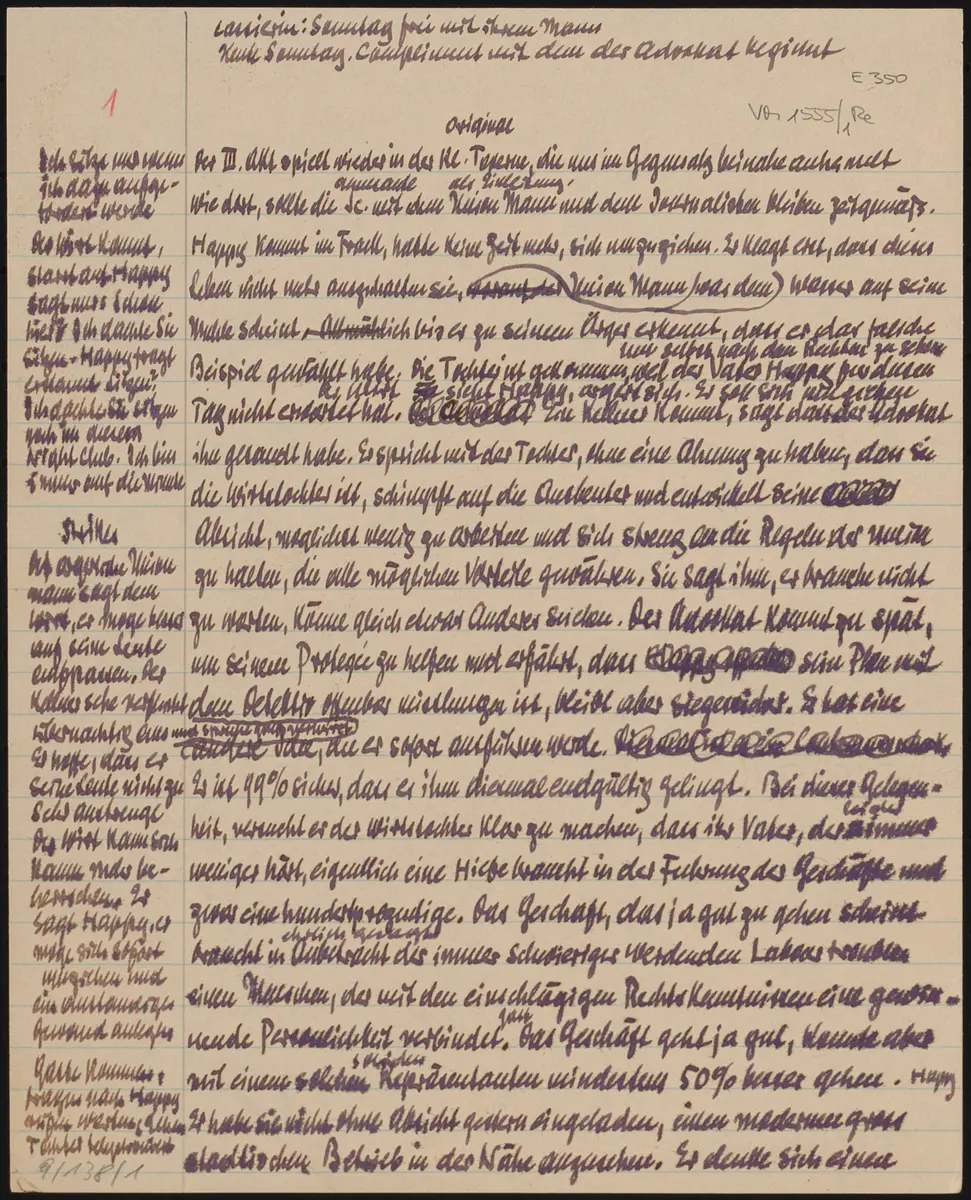 Cassierin: Sonntag frei mit ihrem Mann
Sonntag. Compliment mit dem der Advokat beginnt
E 350
VA 1555/1 Re
1
Original
Der III. Akt spielt wieder in der Kl. Taverne, die nun im Gegensatz beinahe
amüsante als Einleitung.
wie dort, sollte die Sc. mit dem Union Mann und dem Journalisten bleiben zeitgemäss.
Happy kommt im Frack, hatte keine Zeit mehr, sich umzuziehen. Er klagt erst, dass dieses
Leben nicht mehr auszuhalten sei, Union Mann (was dem) Wasser auf seine
Mühle scheint, bis er zu seinem Ärger erkennt, dass er das falsche
nur selbst nach dem Rechten zu sehen
Beispiel gewählt habe. Die Tochter ist gekommen, weil der Vater Happy für diesen
sieht Happy, ärgert sich. Er soll sich
Tag nicht erwartet hat. Ein Kellner kommt, sagt dass der Advokat
ihn gesandt habe. Er spricht mit der Tochter, ohne eine Ahnung zu haben, dass sie
die Wirtstochter ist, schimpft auf die Ausbeuter und entwickelt seine
Absicht, möglichst wenig zu arbeiten und sich streng an die Regeln der Union
zu halten, die alle möglichen Vorteile gewähren. Sie sagt ihm, er brauche nicht
zu warten, könne gleich etwas Anderes suchen. Der Advokat kommt zu spät,
um seinem Protegée zu helfen und erfährt, dass sein Plan mit
dem Detektiv offenbar misslungen ist, bleibt aber siegessicher. Er hat eine
andere Idee, die er sofort ausführen werde.
Er ist 99% sicher, dass es ihm diesmal endgültig gelingt. Bei dieser Gelegen-
heit, versucht er der Wirtstochter klar zu machen, dass ihr Vater, der immer
weniger hört, eigentlich eine Hilfe braucht in der Führung der Geschäfte und
zwar eine hundertprozentige. Das Geschäft, das ja gut zu gehen scheint
ehrlich gesagt
braucht in Anbetracht der immer schwieriger werdenden Labour troubles
einen Menschen, der mit den einschlägigen Rechtskenntnissen eine gewin-
nende Persönlichkeit verbindet. Das Geschäft geht ja gut, könnte aber
soliden
mit einem solchen Repräsentanten mindestens 50% besser gehen. Happy
Er habe sie nicht ohne Absicht gestern eingeladen, einen modernen gross
stadtischen Betrieb in der Nähe anzusehen. Er denke sich einen
Ich sitze nur wenn
ich dazu aufge-
fordert werde
Der Wirt kommt,
starrt auf Happy
sagt nur: Schon
hier? Ich dachte Sie
sitzen. Happy fragt
erstaunt sitzen?
Ich dachte Sie sitzen
noch in diesem
Nightclub. Ich bin
immer auf die Minute
Striker
Der Union
mann sagt dem
Wirt, er möge besser
auf seine Leute
aufpassen. Der
Kellner sehe
übernächtig aus
Er hoffe, dass er
seine Leute nicht zu
sehr anstrenge
Der Wirt kann sich
kaum mehr be-
herrschen. Er
sagt Happy, er
möge sich sofort
umziehen und
ein anständiges
Gewand anlegen
Gäste kommen,
fragen nach Happy
9/138/1